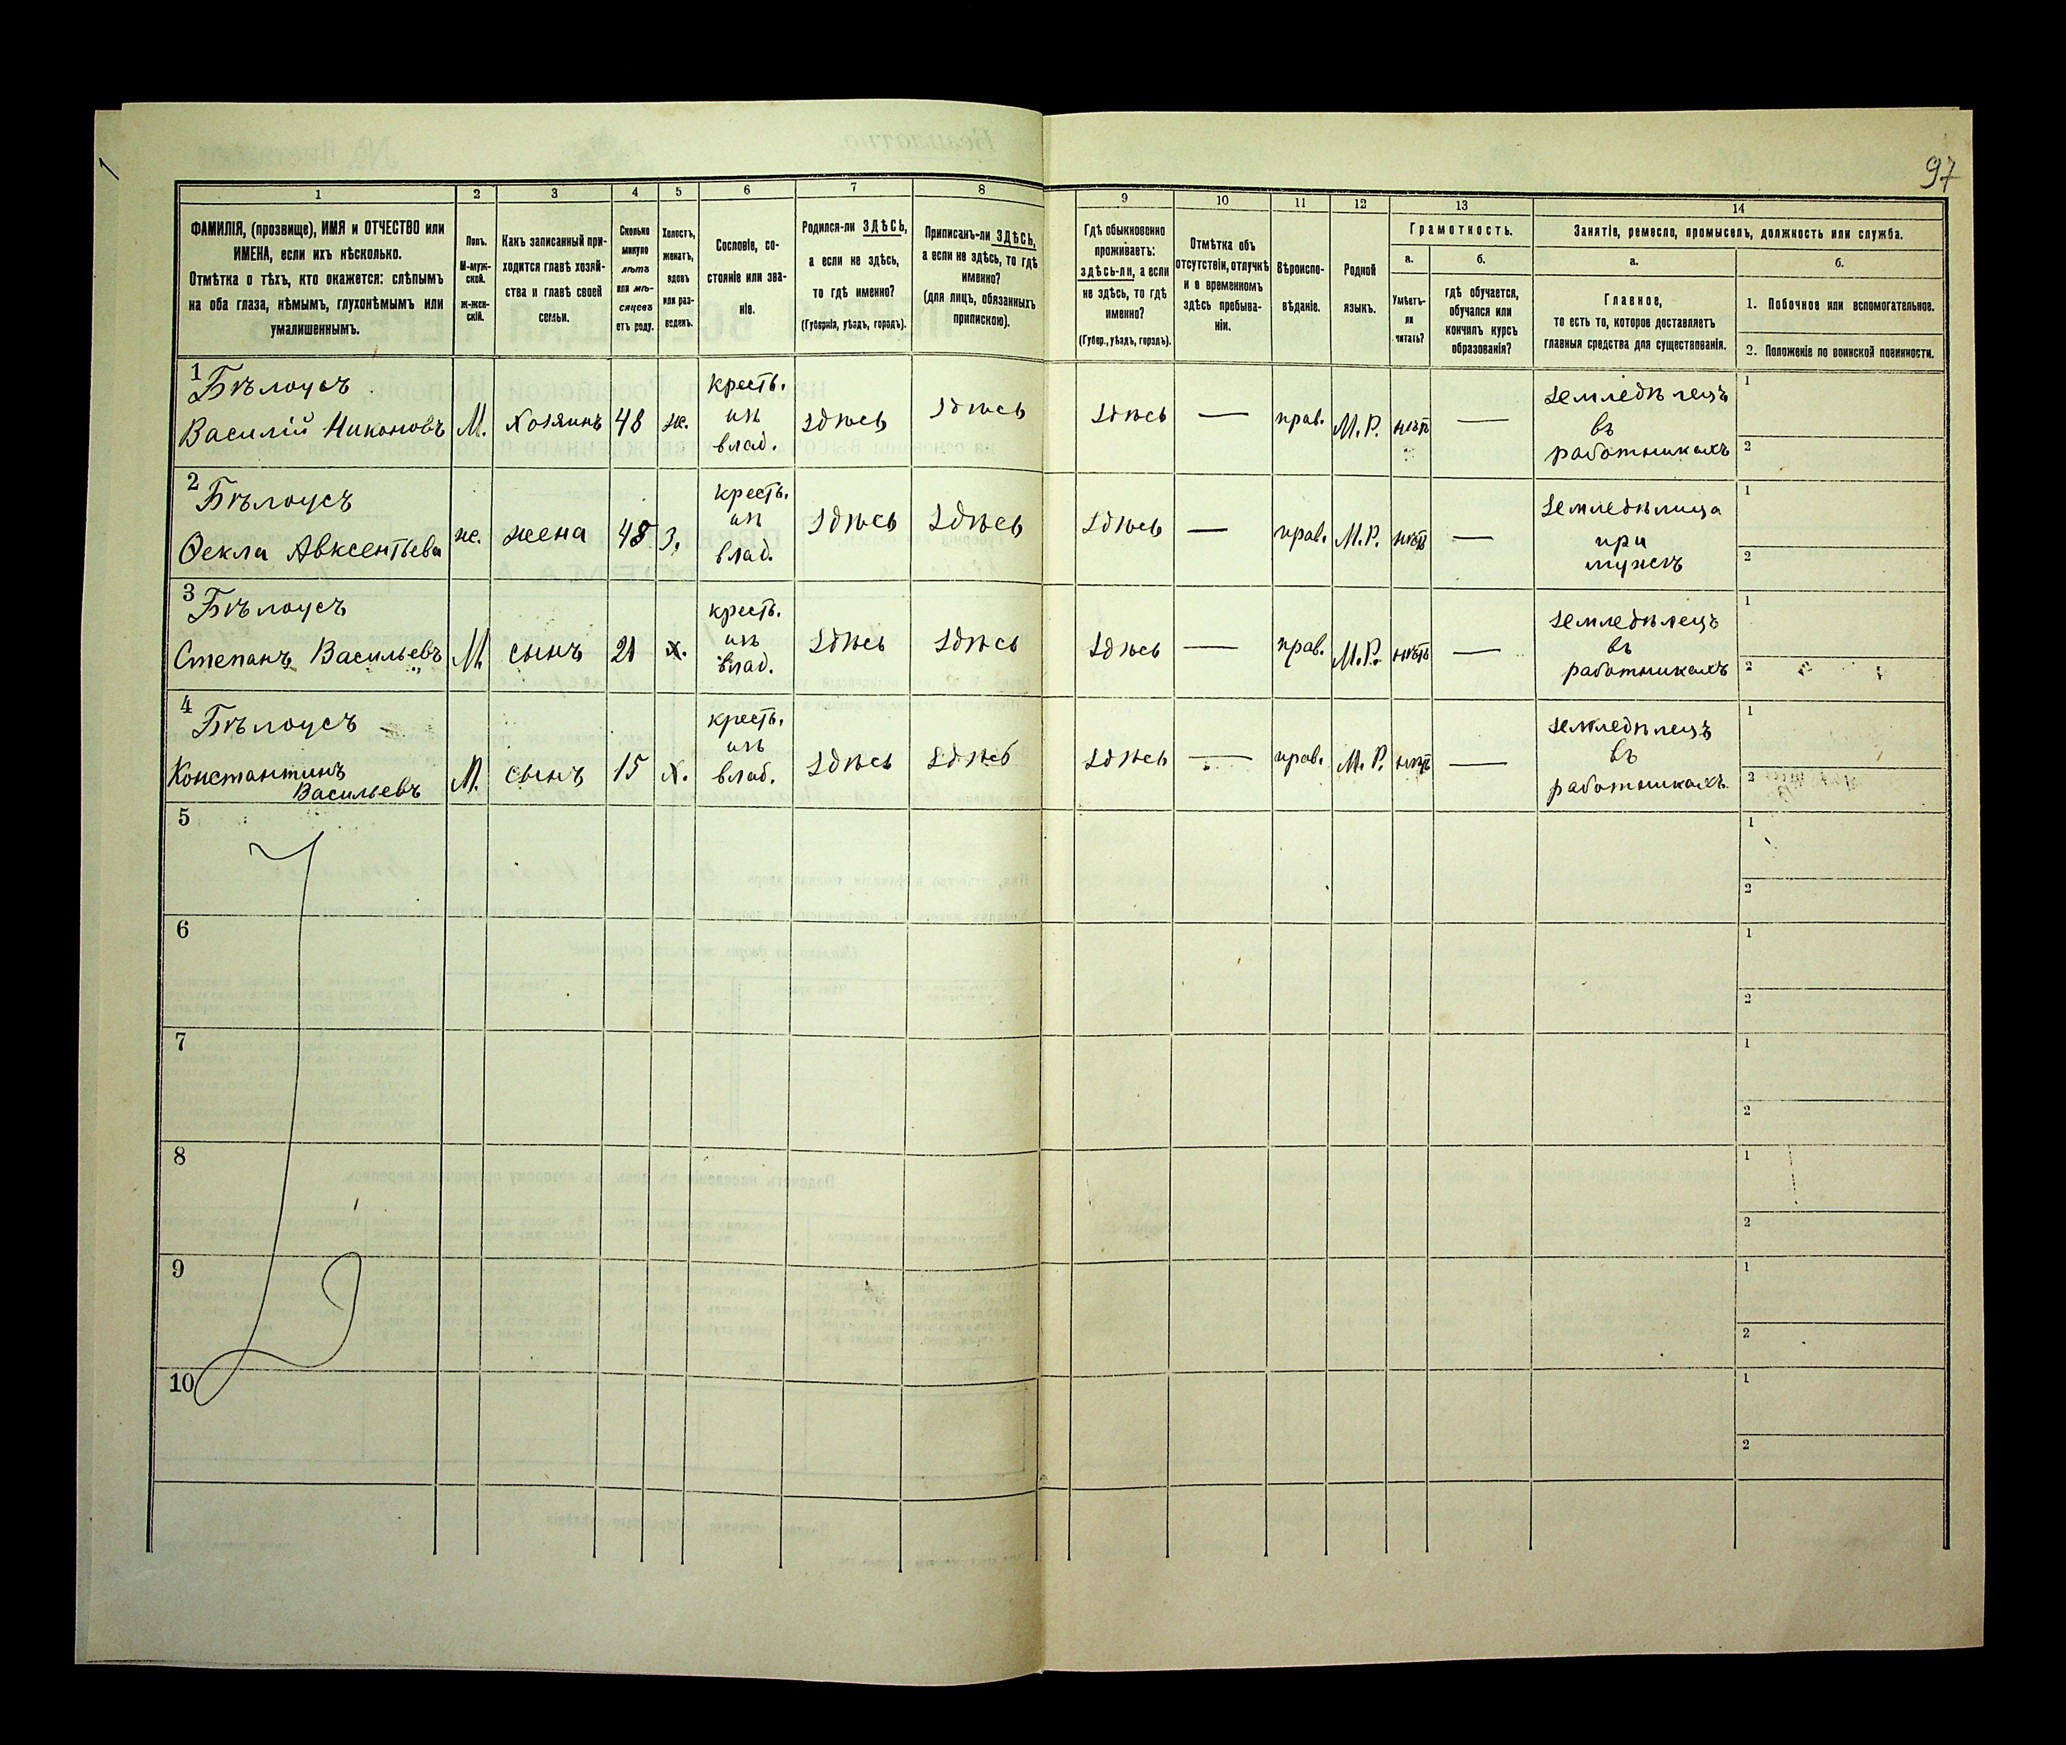 97
1 2 3 4 5 6 7 8 9 10 11 12 13 14
ФАМИЛІЯ, (прозвище), ИМЯ и ОТЧЕСТВО или
ИМЕНА, если ихъ нѣсколько.
Отмѣтка о тѣхъ, кто окажется: слѣпымъ
на оба глаза, нѣмымъ, глухонѣмымъ или
умалишеннымъ.
Полъ.
М-муж-
ской.
ж-жен-
скій.
Какъ записанный при-
ходится главѣ хозяй-
ства и главѣ своей
семьи.
Сколько
минуло
лѣтъ
или мѣ-
сяцевъ
отъ роду.
Холостъ,
женатъ,
вдовъ
или раз-
веденъ.
Сословіе, со-
стояніе или зва-
ніе.
Родился-ли ЗДѢСЬ,
а если не здѣсь,
то гдѣ именно?
(Губернія, уѣздъ, городъ).
Приписанъ-ли ЗДѢСЬ,
а если не здѣсь, то гдѣ
именно?
(для лицъ, обязанныхъ
припискою).
Гдѣ обыкновенно
проживаетъ:
здѣсь-ли, а если
не здѣсь, то гдѣ
именно?
(Губер., уѣздъ, городъ).
Отмѣтка объ
отсутствіи, отлучкѣ
и о временномъ
здѣсь пребыва-
ніи.
Вѣроиспо-
вѣданіе.
Родной
языкъ.
Грамотность.
а.
Умѣетъ-
ли
читать?
б.
гдѣ обучается,
обучался или
кончилъ курсъ
образованія?
Занятіе, ремесло, промыселъ, должность или служба.
а.
Главное,
то есть то, которое доставляетъ
главныя средства для существованія.
б.
1. Побочное или вспомогательное.
2. Положеніе по воинской повинности.
1
Бѣлоусъ
Василій Никоновъ
М.
хозяинъ
48
ж.
кресть.
изъ
влад.
здѣсь
здѣсь
здѣсь
—
прав.
М.Р.
нѣтъ
—
земледѣлецъ
въ
работникахъ
1
2
2
Бѣлоусъ
Ѳекла Авксентьева
ж.
жена
48
з.
кресть.
изъ
влад.
здѣсь
здѣсь
здѣсь
—
прав.
М.Р.
нѣтъ
—
земледѣлица
при
мужѣ
1
2
3
Бѣлоусъ
Степанъ Васильевъ
М.
сынъ
21
х.
кресть.
изъ
влад.
здѣсь
здѣсь
здѣсь
—
прав.
М.Р.
нѣтъ
—
земледѣлецъ
въ
работникахъ
1
2
4
Бѣлоусъ
Константинъ
Васильевъ
М.
сынъ
15
х.
кресть.
изъ
влад.
здѣсь
здѣсь
здѣсь
—
прав.
М.Р.
нѣтъ
—
земледѣлецъ
въ
работникахъ.
1
2
5
1
2
6
1
2
7
1
2
8
1
2
9
1
2
10
1
2